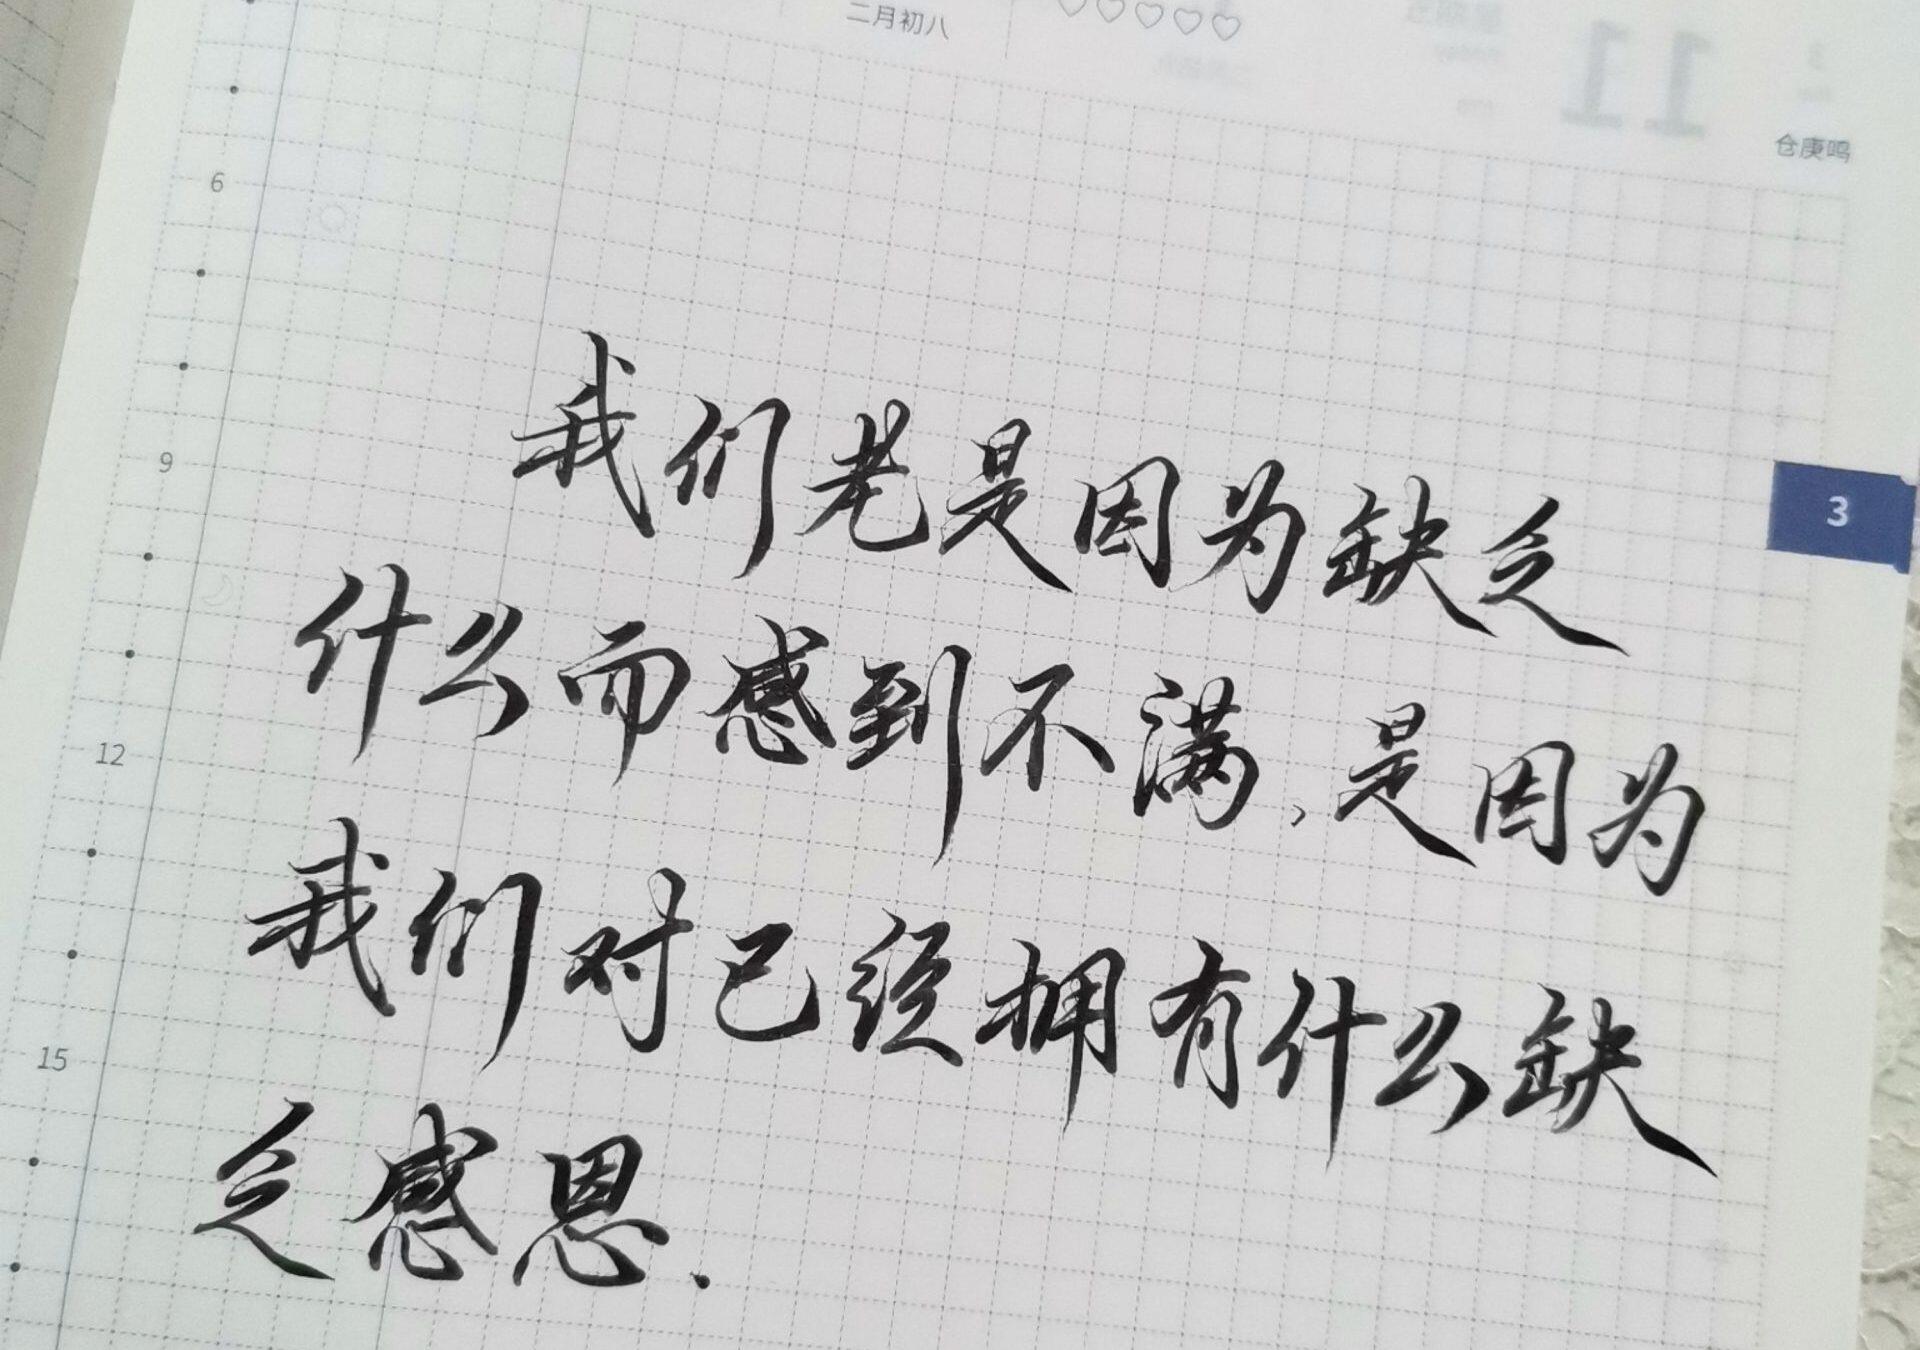 二月初八
仓庚鸣
6
9
12
15
3
我们老是因为缺乏
什么而感到不满,是因为
我们对已经拥有什么缺
乏感恩.